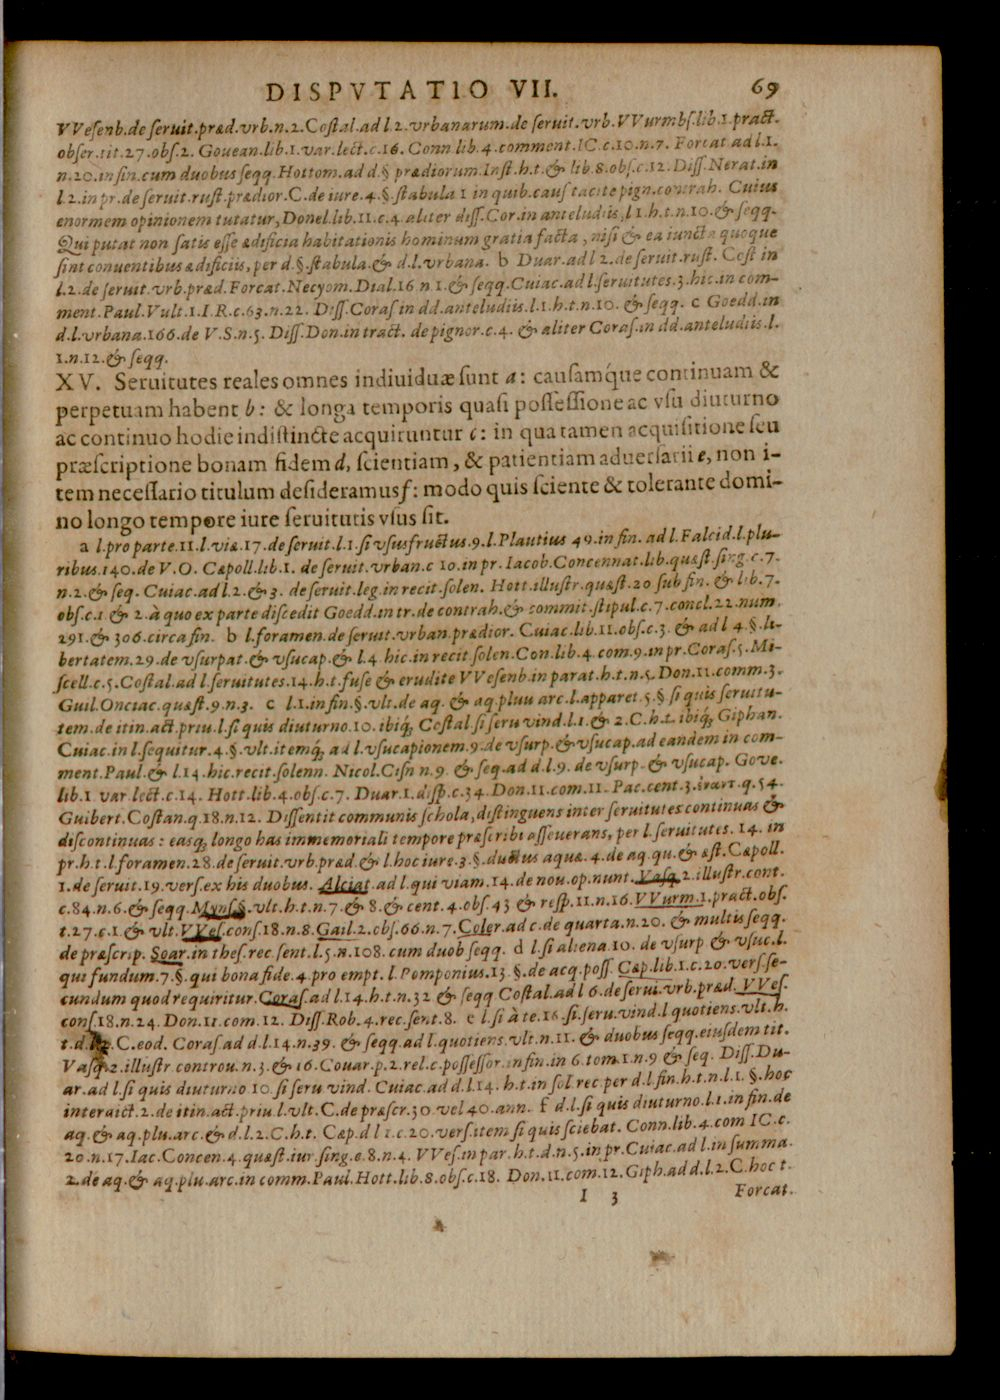 DISPVTATIO VII. 69
VVesenb.de seruit.præd.vrb.n.2.Costal.ad l.2.vrbanarum.de seruit.vrb.VVurmbs.lib.1.pract.
obser.tit.27.obs.2. Gouean.lib.1.var.lect.c.16. Conn lib.4.comment.IC.c.10.n.7. Forcat ad l.1.
n.20.in fin.cum duobus seqq.Hottom.ad d.§ prædiorum.Inst.h.t.& lib.8.obs.c.12.Diss.Nerat.in
l.2.in pr.de seruit.rust.prædior.C.de iure.4.§.stabula 1 in quib.caus tacite pign.contrah. Cuius
enormem opinionem tutatur, Donel.lib.11.c.4.aliter diss.Cor.in anteludiis.l 1.h.t.n.10.& seqq.
Qui putat non satis esse ædificia habitationis hominum gratia facta, nisi & ea iuncta quoque
sint conuentibus ædificiis, per d.§.stabula.& d.l.vrbana. b Duar.ad l 2.de seruit.rust. Cost in
l.2.de seruit.vrb.præd.Forcat.Necyom.Dial.16 n 1.& seqq.Cuiac.ad l.seruitutes.3.hic.in com-
ment.Paul.Vult.1.I.R.c.63.n.22. Diss.Coras in dd.anteludiis.l.1.h.t.n.10. & seqq. c Goedd.in
d.l.vrbana.166.de V.S.n.5. Diss.Don.in tract. de pignor.c.4. & aliter Coras.in dd.anteludiis.l.
1.n.12.& seqq.
XV. Seruitutes reales omnes indiuiduæ sunt a: causamq́ue continuam &
perpetuam habent b: & longa temporis quasi possessione ac vsu diuturno
ac continuo hodie indistincte acquiruntur c: in qua tamen acquisitione seu
præscriptione bonam fidem d, scientiam, & patientiam aduersarii e, non i-
tem necessario titulum desideramus f: modo quis sciente & tolerante domi-
no longo tempore iure seruitutis vsus sit.
a l.pro parte.11.l.viæ.17.de seruit.l.1.si vsusfructus.9.l.Plautius 49.in fin.ad l.Falcid.l.plu-
ribus.140.de V.O. Cæpoll.lib.1. de seruit.vrban.c 10.in pr.Iacob.Concennat.lib.quæst sing.c.7.
n.2.& seq. Cuiac.ad l.2.& 3. de seruit.leg.in recit.solen. Hott.illustr.quæst.20 sub fin. & lib.7.
obs.c.1 & 2.à quo ex parte discedit Goedd.in tr.de contrah.& commit.stipul.c.7.concl.22.num.
291.& 306.circa fin. b l.foramen.de seruit.vrban.prædior. Cuiac.lib.11.obs.c.3. & ad l 4.§.li-
bertatem.29.de vsurpat.& vsucap.& l.4 hic.in recit solen.Con.lib.4.com.9.in pr.Coras.5.Mi-
scell.c.5.Costal.ad l.seruitutes.14.h.t.fuse & erudite VVesenb.in parat.h.t.n.5.Don.11.comm.3.
Guil.Onciac.quæst.9.n.3. c l.1.in fin.§.vlt.de aq. & aq.pluu arc.l.apparet.5.§ si quis seruitu-
tem.de itin.act.priu.l.si quis diuturno.10.ibiq́; Costal.si seru vind.l.1.& 2.C.h.t.ibiq́; Giphan.
Cuiac.in l.sequitur.4.§.vlt.itemq́; ad l.vsucapionem.9.de vsurp.& vsucap.ad eandem in com-
ment.Paul.& l.14.hic.recit.solenn. Nicol.Cisn n.9. & seq.ad d.l.9. de vsurp.& vsucap. Goue-
lib.1 var.lect.c.14. Hott.lib.4.obs.c.7. Duar.1.disp.c.34.Don.11.com.11. Pac.cent.3. q.54.
Guibert.Costan.q.18.n.12. Dissentit communis schola, distinguens inter seruitutes continuas &
discontinuas: easq́; longo has immemoriali tempore præscribi asseuerans, per l.seruitutes. 14. in
pr.h.t.l foramen.28.de seruit.vrb præd.& l.hoc iure.3.§.ductus aquæ.4.de aq.qu.& æst.Cæpoll.
1.de seruit.19.vers.ex his duobus. Alciat.ad l.qui viam.14.de nou.op.nunt.Vasq.2.illustr.cont.
c.84.n.6.& seqq.Myns.§.vlt.h.t.n.7.& 8.& cent.4.obs.43 & resp.11.n.16.VVurm.1.pract.obs.
t.27.c.1.& vlt.VVes.cons.18.n.8.Gail.2.obs.66.n.7.Coler.ad c.de quarta.n.20. & multis seqq.
de præscrip. Soar.in thes.rec.sent.l.5.n.108.cum duob seqq. d l.si aliena.10. de vsurp & vsuc.l.
qui fundum.7.§.qui bona fide.4.pro empt. l.Pomponius.13.§.de acq.poss. Cæp.lib.1.c.20.vers.se-
cundum quod requiritur.Coras.ad l.14.h.t.n.32 & seqq Costal.ad l 6.de serui.vrb.præd. VVes.
cons.18.n.24. Don.11.com.12. Diss.Rob.4.rec.sent.8. e l.si à te.16.si.seru.vind.l quotiens.vlt.h.
t.d. C.eod. Coras.ad d.l.14.n.39. & seqq.ad l.quotiens.vlt.n.11. & duobus seqq.eiusdem tit.
Vasq.2.illustr controu.n.3.& 16.Couar.p.2.rel.c.possessor in fin.in 6.tom.1.n.9 & seq. Diss.Du-
ar.ad l.si quis diuturno 10.si seru vind. Cuiac.ad d.l.14. h.t.in sol rec per d.l.fin.h.t.n.l.1. §.hoc
interdict.2.de itin.act.priu.l.vlt.C.de præscr.30.vel 40.ann. f d.l.si quis diuturno.l.1.in fin.de
aq.& aq.plu.arc.& d.l.2.C.h.t. Cæp.d l 1.c.20.vers.item si quis sciebat. Conn.lib.4.com IC.c.
20.n.17.Iac.Concen.4.quæst.iur.sing.c.8.n.4. VVes.in par.h.t.d.n.5.in pr.Cuiac.ad l.in summa.
2.de aq.& aq.plu.arc.in comm.Paul.Hott.lib.8.obs.c.18. Don.11.com.12.Giph.ad d.l.2.C.hoc t.
I 3 Forcat.